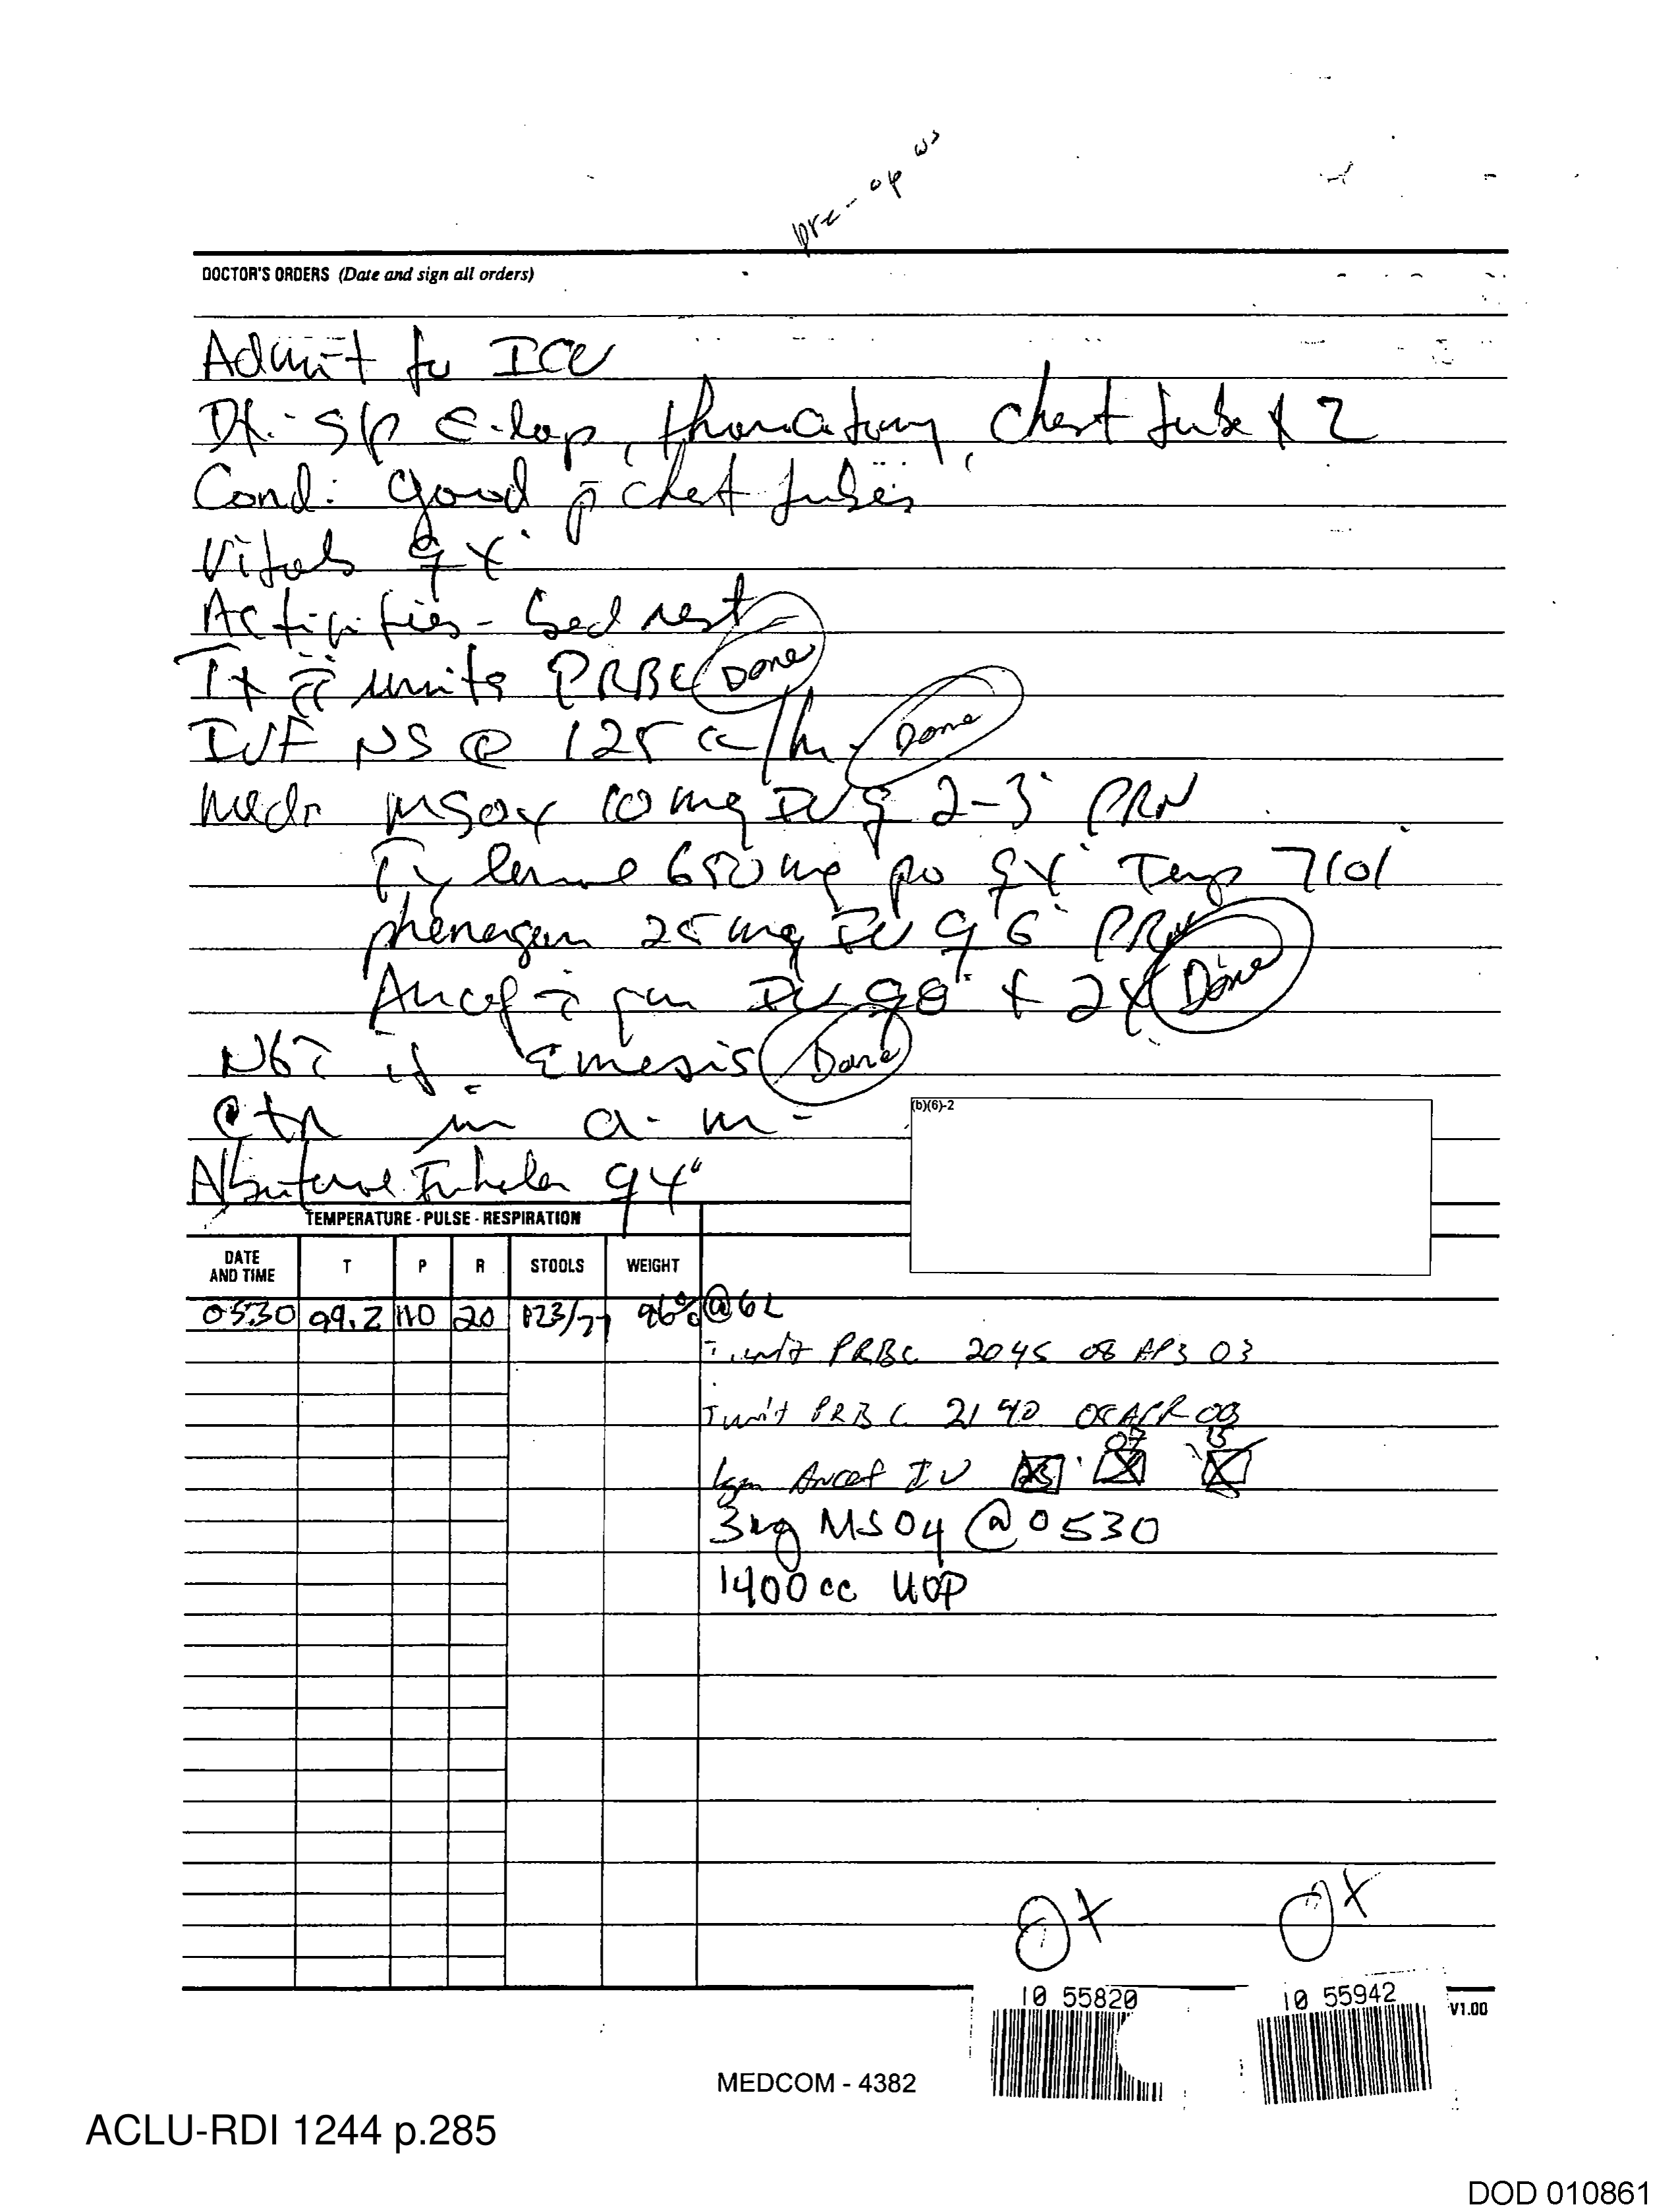 pre-op
DOCTOR'S ORDERS (Date and sign all orders)
Admit to ICU
DX: S/P E-lap, thoracotomy, chest tube x 2
Cond: good p̄ chest tubes
Vitals q 4°
Activities - bed rest
Tx ii units PRBC Done
IVF NS @ 125 cc/hr Done
Meds MSO4 10 mg IV q 2-3° PRN
Tylenol 650 mg po q4° Temp >101
phenergan 25 mg IV q 6° PRN
Ancef i gm IV q8° x 2 Done
NGT if emesis Done
in a.m.
(b)(6)-2
Albuterol Inhaler q4°
TEMPERATURE - PULSE - RESPIRATION
DATE AND TIME T P R STOOLS WEIGHT
0530 99.2 110 20 123/77 96% @ 6L
I unit PRBC 2045 08 APR 03
I unit PRBC 2140 08 APR 03
1gm Ancef IV 23 07 15
3mg MSO4 @ 0530
1400 cc UOP
O+ O+
10 55820 10 55942
V1.00
MEDCOM - 4382
ACLU-RDI 1244 p.285
DOD 010861